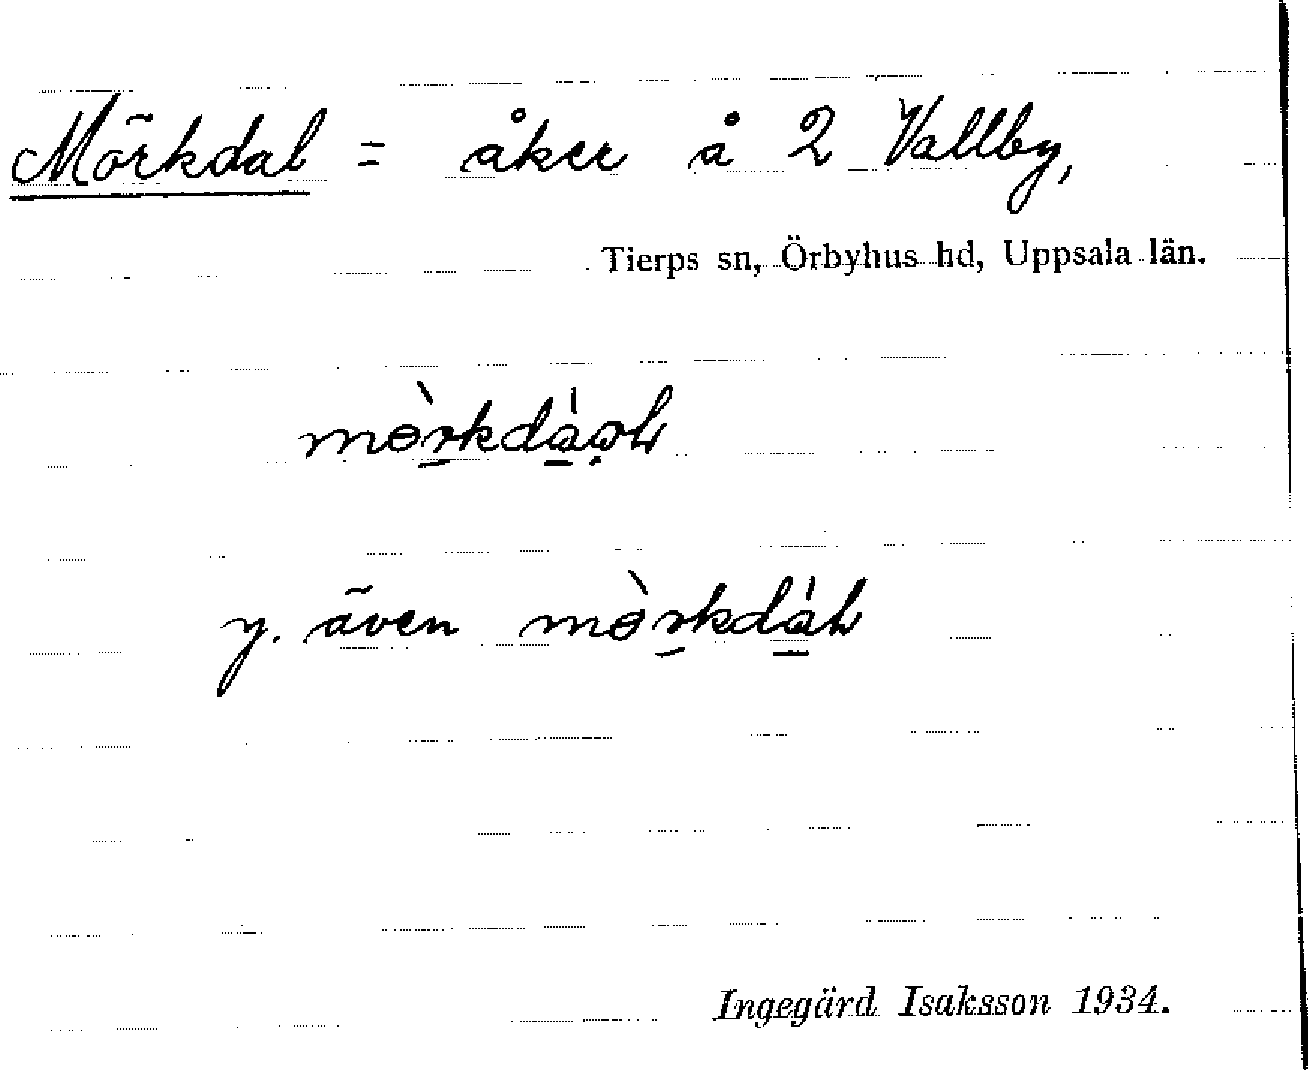 Mörkdal = åker å 2 Vallby,
Tierps sn, Örbyhus hd, Uppsala län.
y. även
Ingegärd Isaksson 1934.